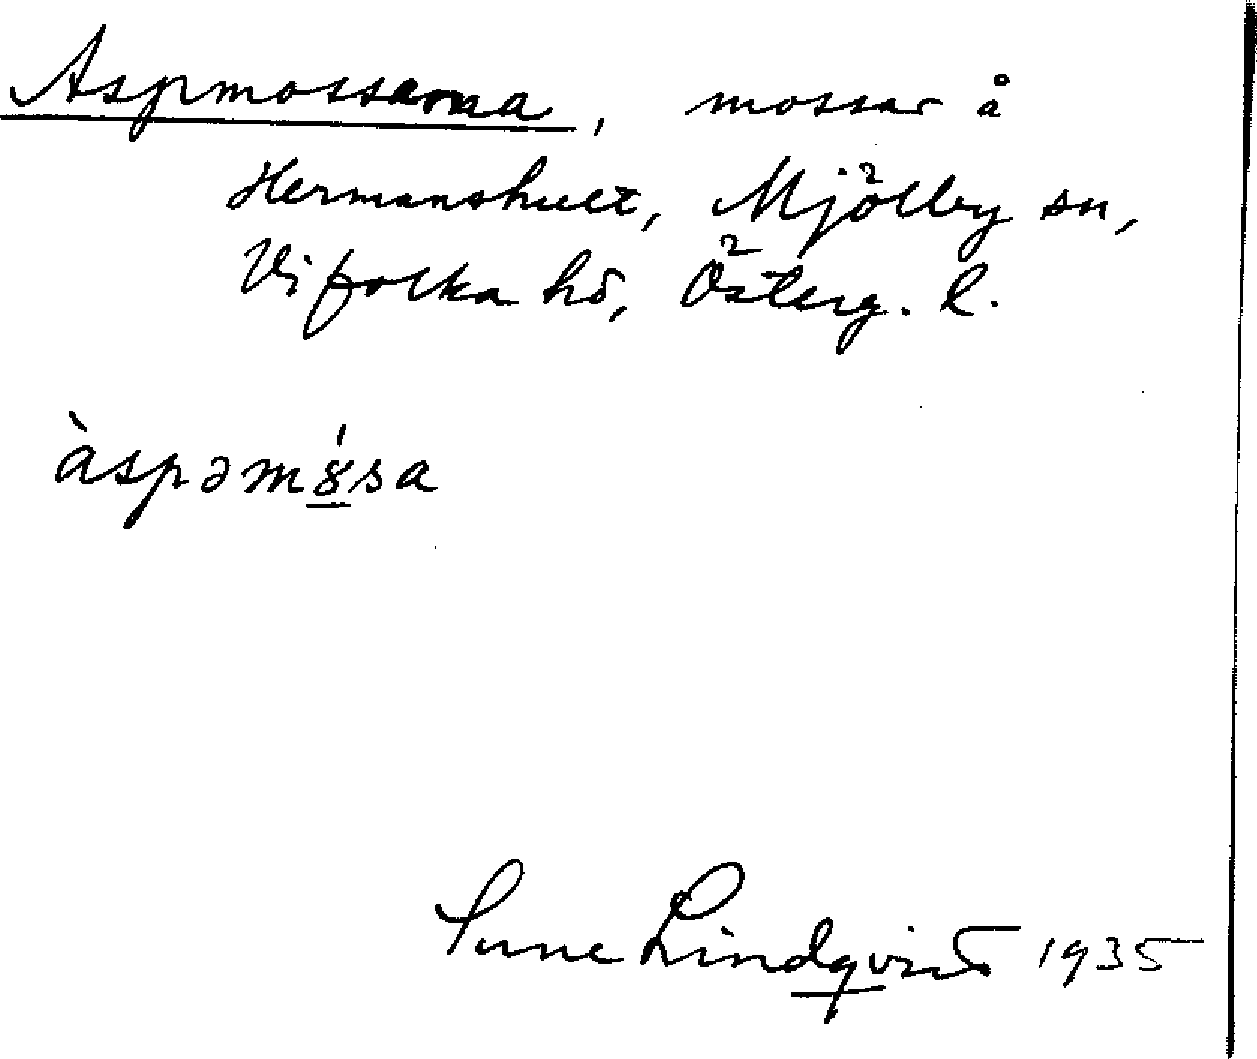 Aspmossarna, mossar å
Hermanshult, Mjölby sn,
Vifolka hd, Österg. l.
àspəmós̱a
Sune Lindqvist 1935